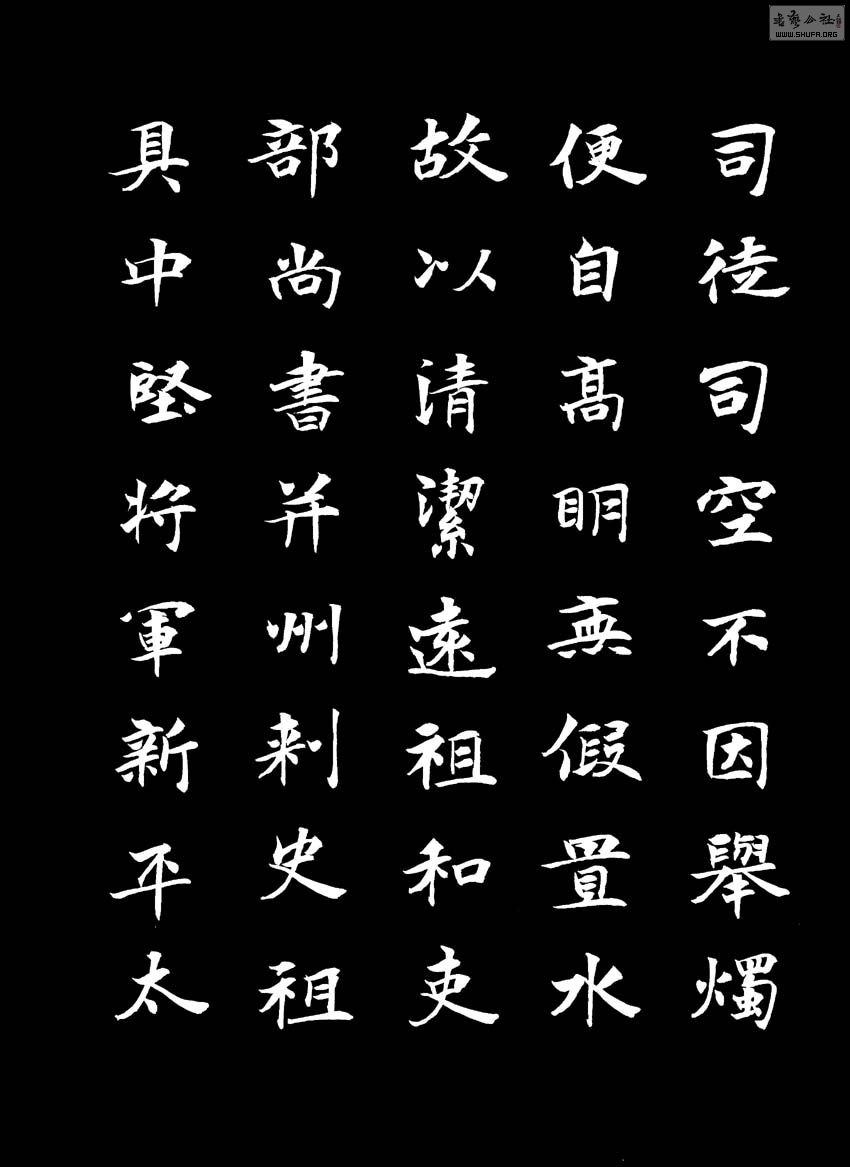 司徒司空不因舉燭
便自高明無假置水
故以清潔遠祖和吏
部尚書并州刺史祖
具中堅將軍新平太
WWW.SHUFA.ORG